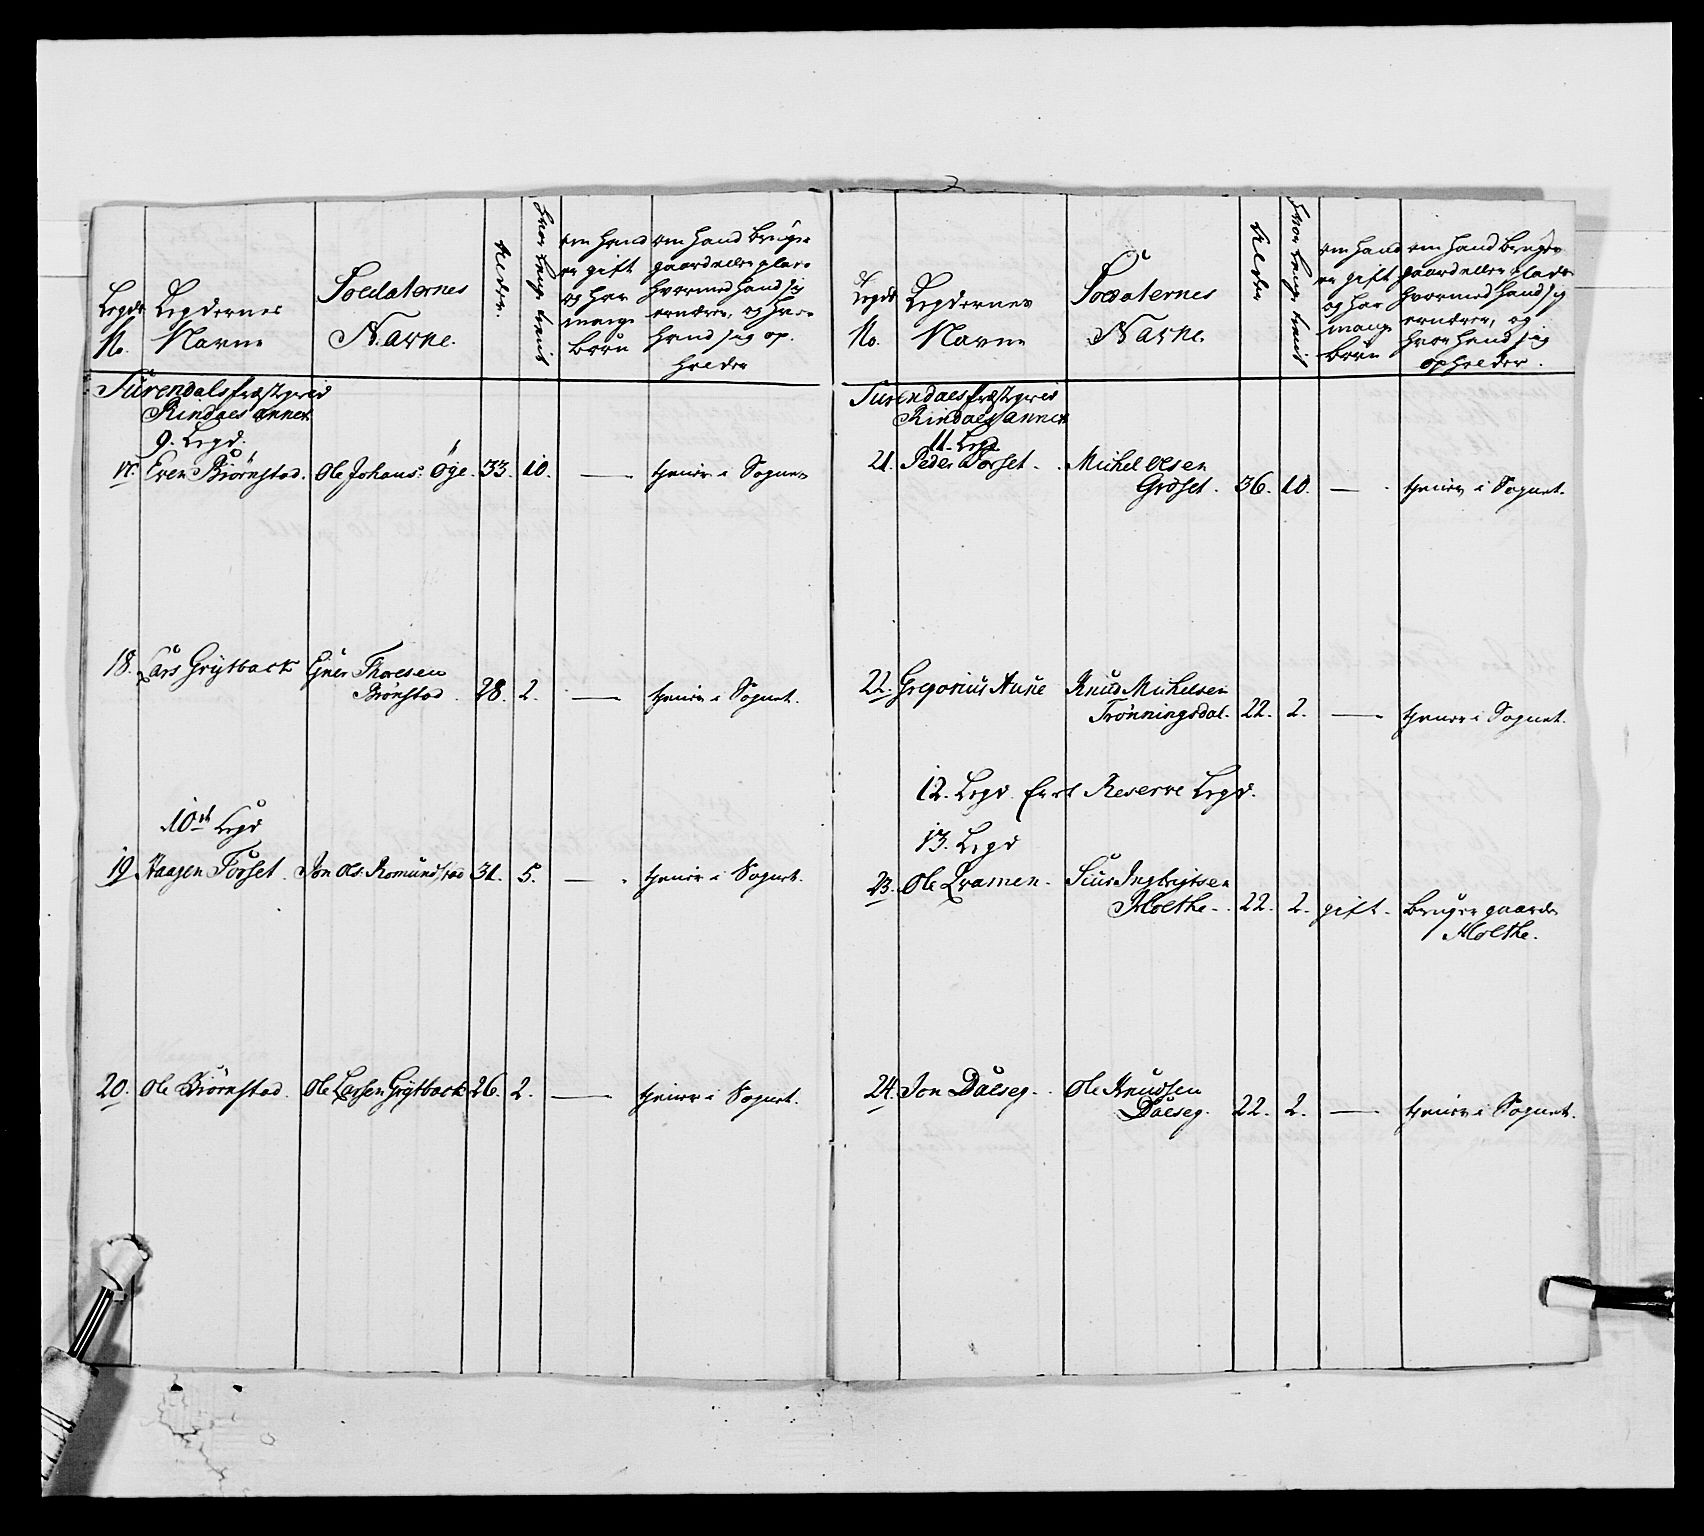 Legds
No.
Legdernes
Navne
Soldaternes
Navne.
Alder.
hvor lenge tient
om hand
er gift
og har
mange
børn
om hand bruger
gaard eller plads
hvormed hand sig
ernærer, og hvor
hand sig op-
holder
Surendals Præstegield
Rindals annex
9. Legd.
17. Even Biørnstad. Ole Johans: Øye. 33. 10. — tjener i Sognet
18. Lars Grytback Ejner Thoresen
Brønstad. 28. 2. — tjener i Sognet.
10de Legd
19 Haagen Torset. Jon Ols: Romundstad 31. 5. — tjener i Sognet.
20. Ole Biørnstad. Ole Larsen Grytback 26. 2. — tjener i Sognet.
Legds
No.
Legdernes
Navne
Soldaternes
Navne.
Alder
hvor lenge tient
om hand
er gift
og har
mange
børn
om hand bruger
gaard eller plads
hvormed hand sig
ernærer, og
hvor hand sig
opholder.
Surendals Præstegield
Rindals annex
11. Legd
21. Peder Torset. Michel Olsen
Grøset. 36. 10. — tjener i Sognet.
22. Gregorius Aune Knud Michelsen
Trønningsdal. 22. 2. — tjener i Sognet.
12. Legd er Reserve Legd.
13. Legd
23. Ole Qvamen. Siur Ingbrigtsen
Holthe. 22. 2. gift. bruger gaarden
Holthe.
24. Jon Dalseg. Ole Knudsen
Dalseg. 22. 2. — tjener i Sognet.